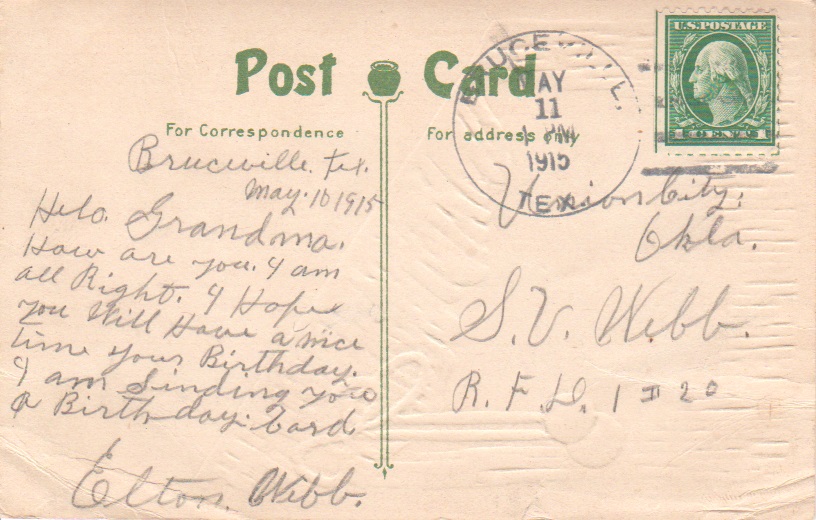 Post Card
For Correspondence
For address only
BRUCEVILLE.
MAY
11
1 PM
1915
TEX
U.S.POSTAGE
1 CENT 1
Bruceville. Tex.
May. 10 1915
Helo. Grandma.
How are you. I am
all Right. I Hope
you Will Have a nice
time your Birthday.
I am Sinding you
a Birthday. Card.
Elton. Webb.
Union City.
Okla.
S. V. Webb.
R. F. D. 1
20